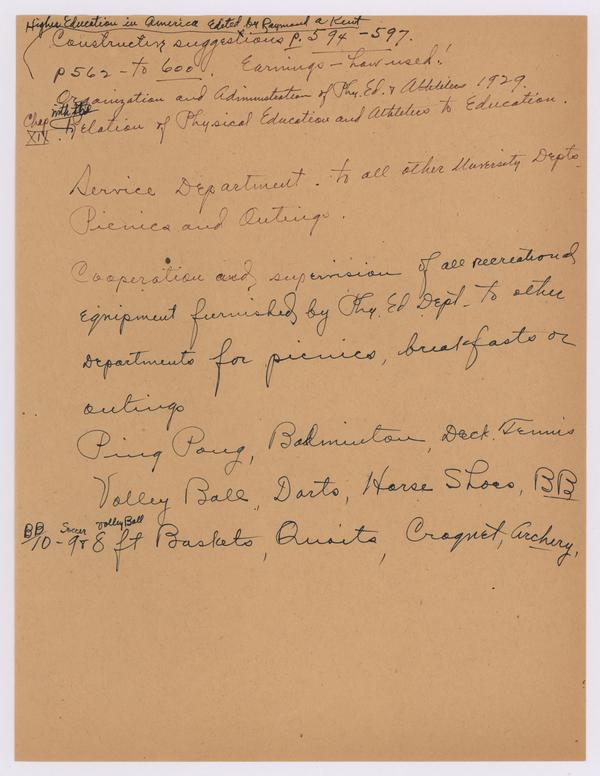 Higher Education in America Edited by Raymond a Kent
Constructive suggestions p. 594 - 597.
p 562 - to 600. Earnings - how used!
Organization and Administration of Phy. Ed. & Athletics 1929.
Chap XIX. Relation of Physical Education and Athletics to Education.
Service Department. to all other University Depts.
Picnics and Outings.
Cooperation and supervision of all recreational
Equipment furnished by Phy. Ed Dept. to other
Departments for picnics, breakfasts or
outings
Ping Pong, Badminton, Deck Tennis
Volley Ball, Darts, Horse Shoes, BB
BB Soccer Volley Ball
10 - 9 & 8 ft Baskets, Quoits, Croquet, Archery,